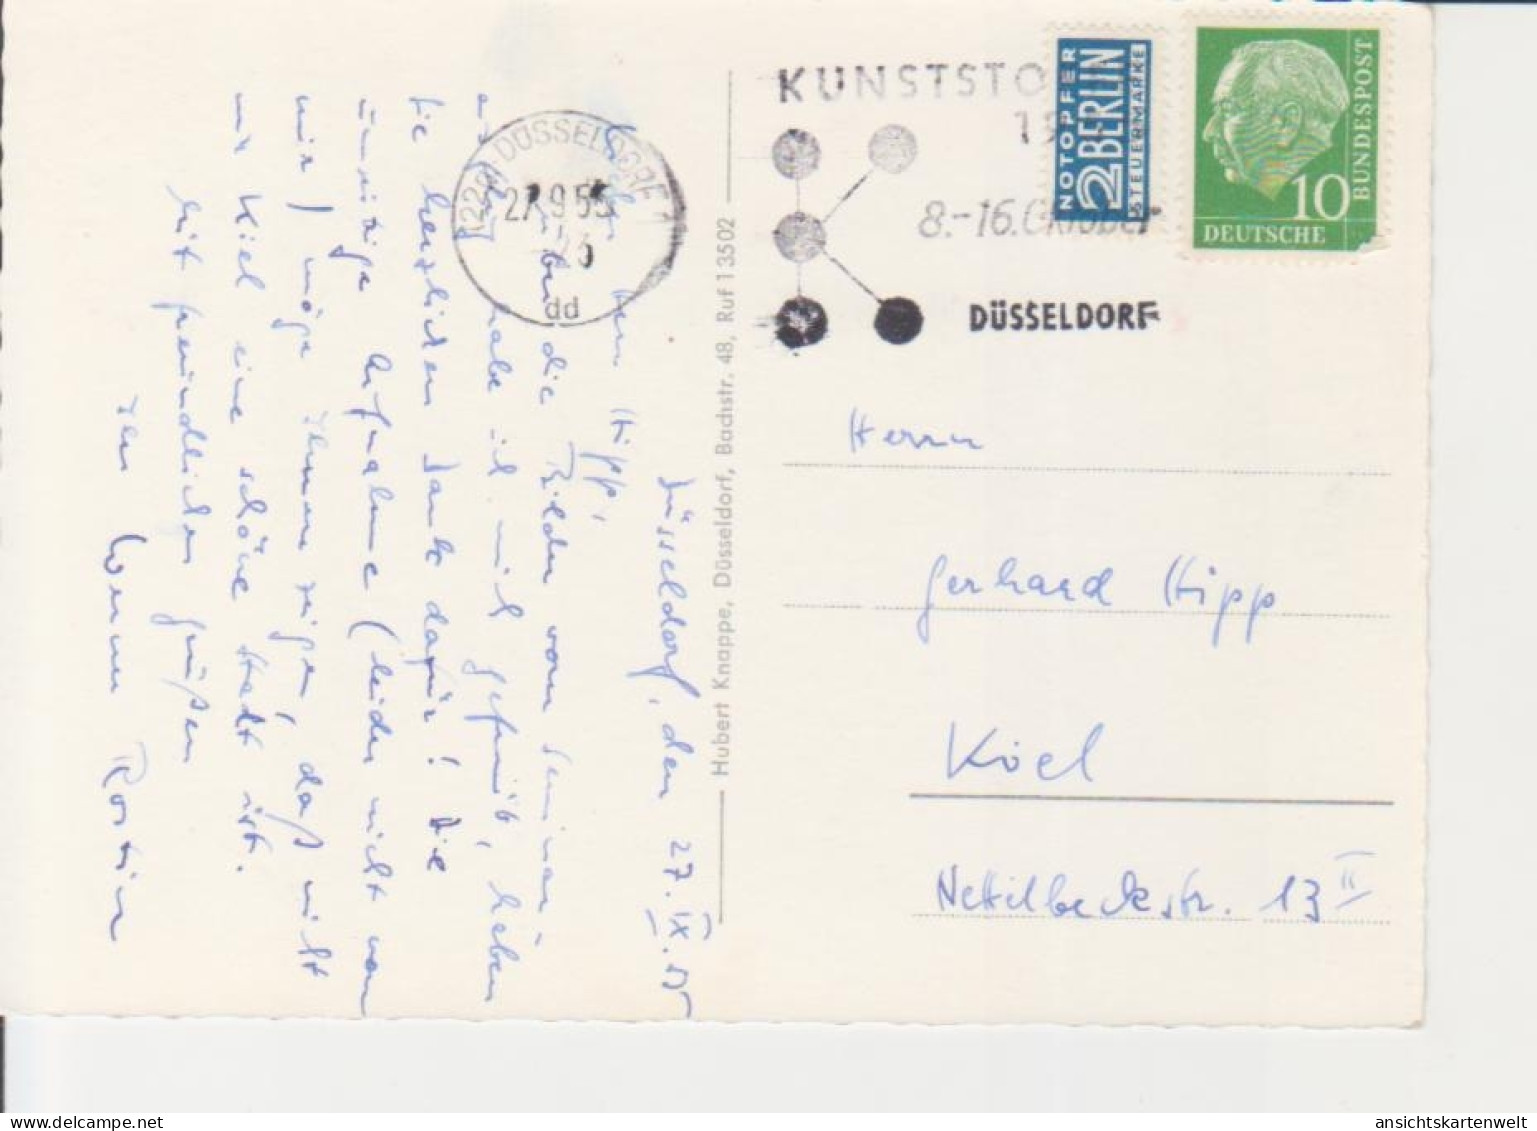 KUNSTSTO
8.-16. Oktober
DÜSSELDORF
NOTOPFER
2 BERLIN
STEUERMARKE
10
DEUTSCHE
BUNDESPOST
DÜSSELDORF
27.9.55
dd
Düsseldorf, den 27. IX. 55
Herr Hipp,
die Bilder vom Seminar
habe ich mich gefreut, haben
Sie herzlichen Dank dafür! Die
Aufnahme (leider nicht von
mir) möge Ihnen zeigen, daß nicht
nur Kiel eine schöne Stadt ist.
Mit freundlichen Grüßen
Ihr Werner
Hubert Knappe, Düsseldorf, Bachstr. 48, Ruf 13502
Herrn
Gerhard Hipp
Kiel
Nettelbeckstr. 13 II
ansichtskartenwelt.com